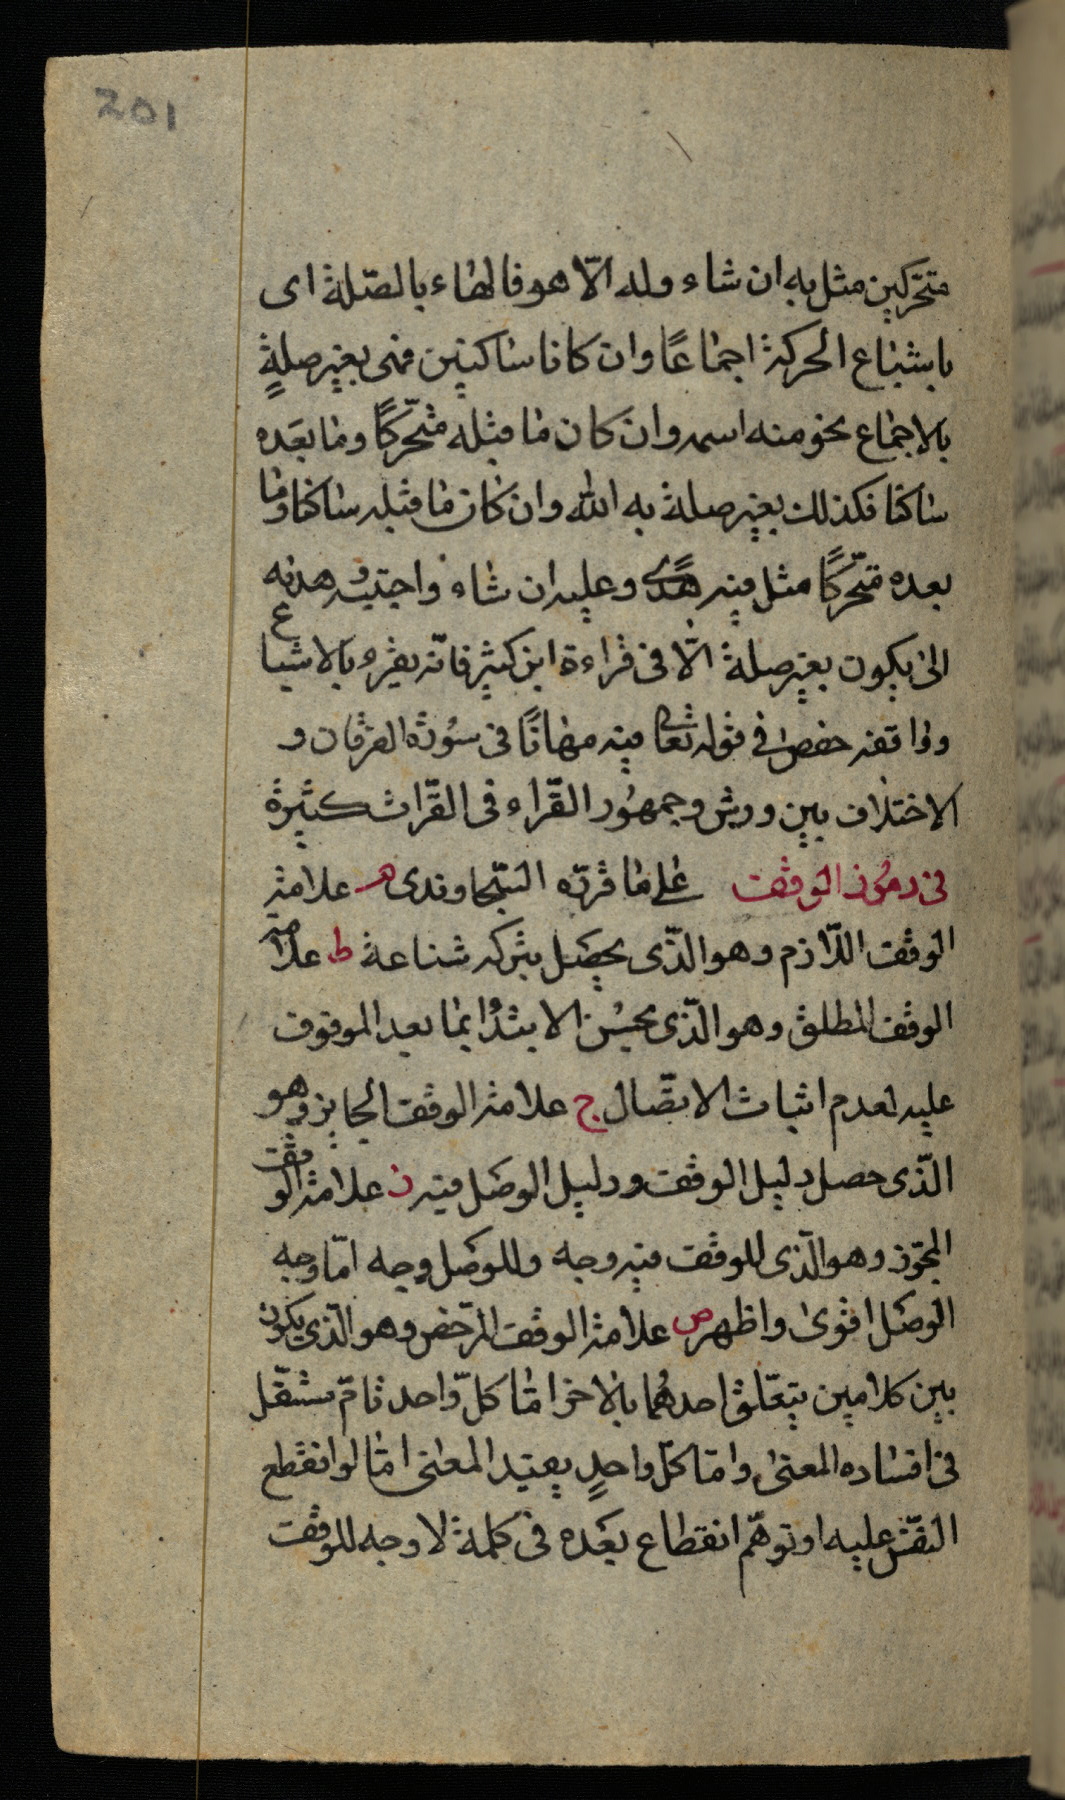 201
متحركين مثل به ان شاء وله الّا هو فالهاء بالصّلة اى
باشباع الحركة اجماعًا وان كانا ساكنين فهى بغير صلةٍ
بالاجماع نحو منه اسمه وان كان ما قبله متحّركًا وما بعَده
ساكنا فكذلك بغير صلة به الله وان كان ما قبله ساكنا وما
بعده متحّركًا مثل فيه هدًى وعليه ان شاء واجتبيه وهديه
الى يكون بغير صلة الّا فى قراءة ابن كثير فانّه يقرء بالاشباع
ووافقه حفص فى قوله تعالى فيه مهانًا فى سُورة الفرقان و
الاختلاف بين ورش وجمهُور القّراء فى القّرات كثيرة
فى رمُوز الوقف على ما قرّره السّجاوندى م علامة
الوقف اللّازم وهو الّذى يحصَل بتركه شناعة ط علامة
الوقف المطلق وهو الّذى يحسُن الابتدُا بما بعد الموقوف
عليه لعدم اثبات الاتصّال ج علامة الوقف الجايز وهو
الّذى حصل دليل الوقف ودليل الوصَل فيه ز علامة الوقف
المجوّز وهو الّذى للوقف فيه وجه وللوصَل وجه امّا وجه
الوصَل اقوى واظهر ص علامة الوقف المرّخص وهو الّذى يكون
بين كلامين يتعّلق احدهُما بالاخر امّا كلّ واحد تامّ مستقّل
فى افساده المعنى وامّا كلّ واحدٍ يفيد المعنى امّا لو انقطع
النفّس عليه او توهّم انقطاع بعَده فى كلمة لا وجه للوقف